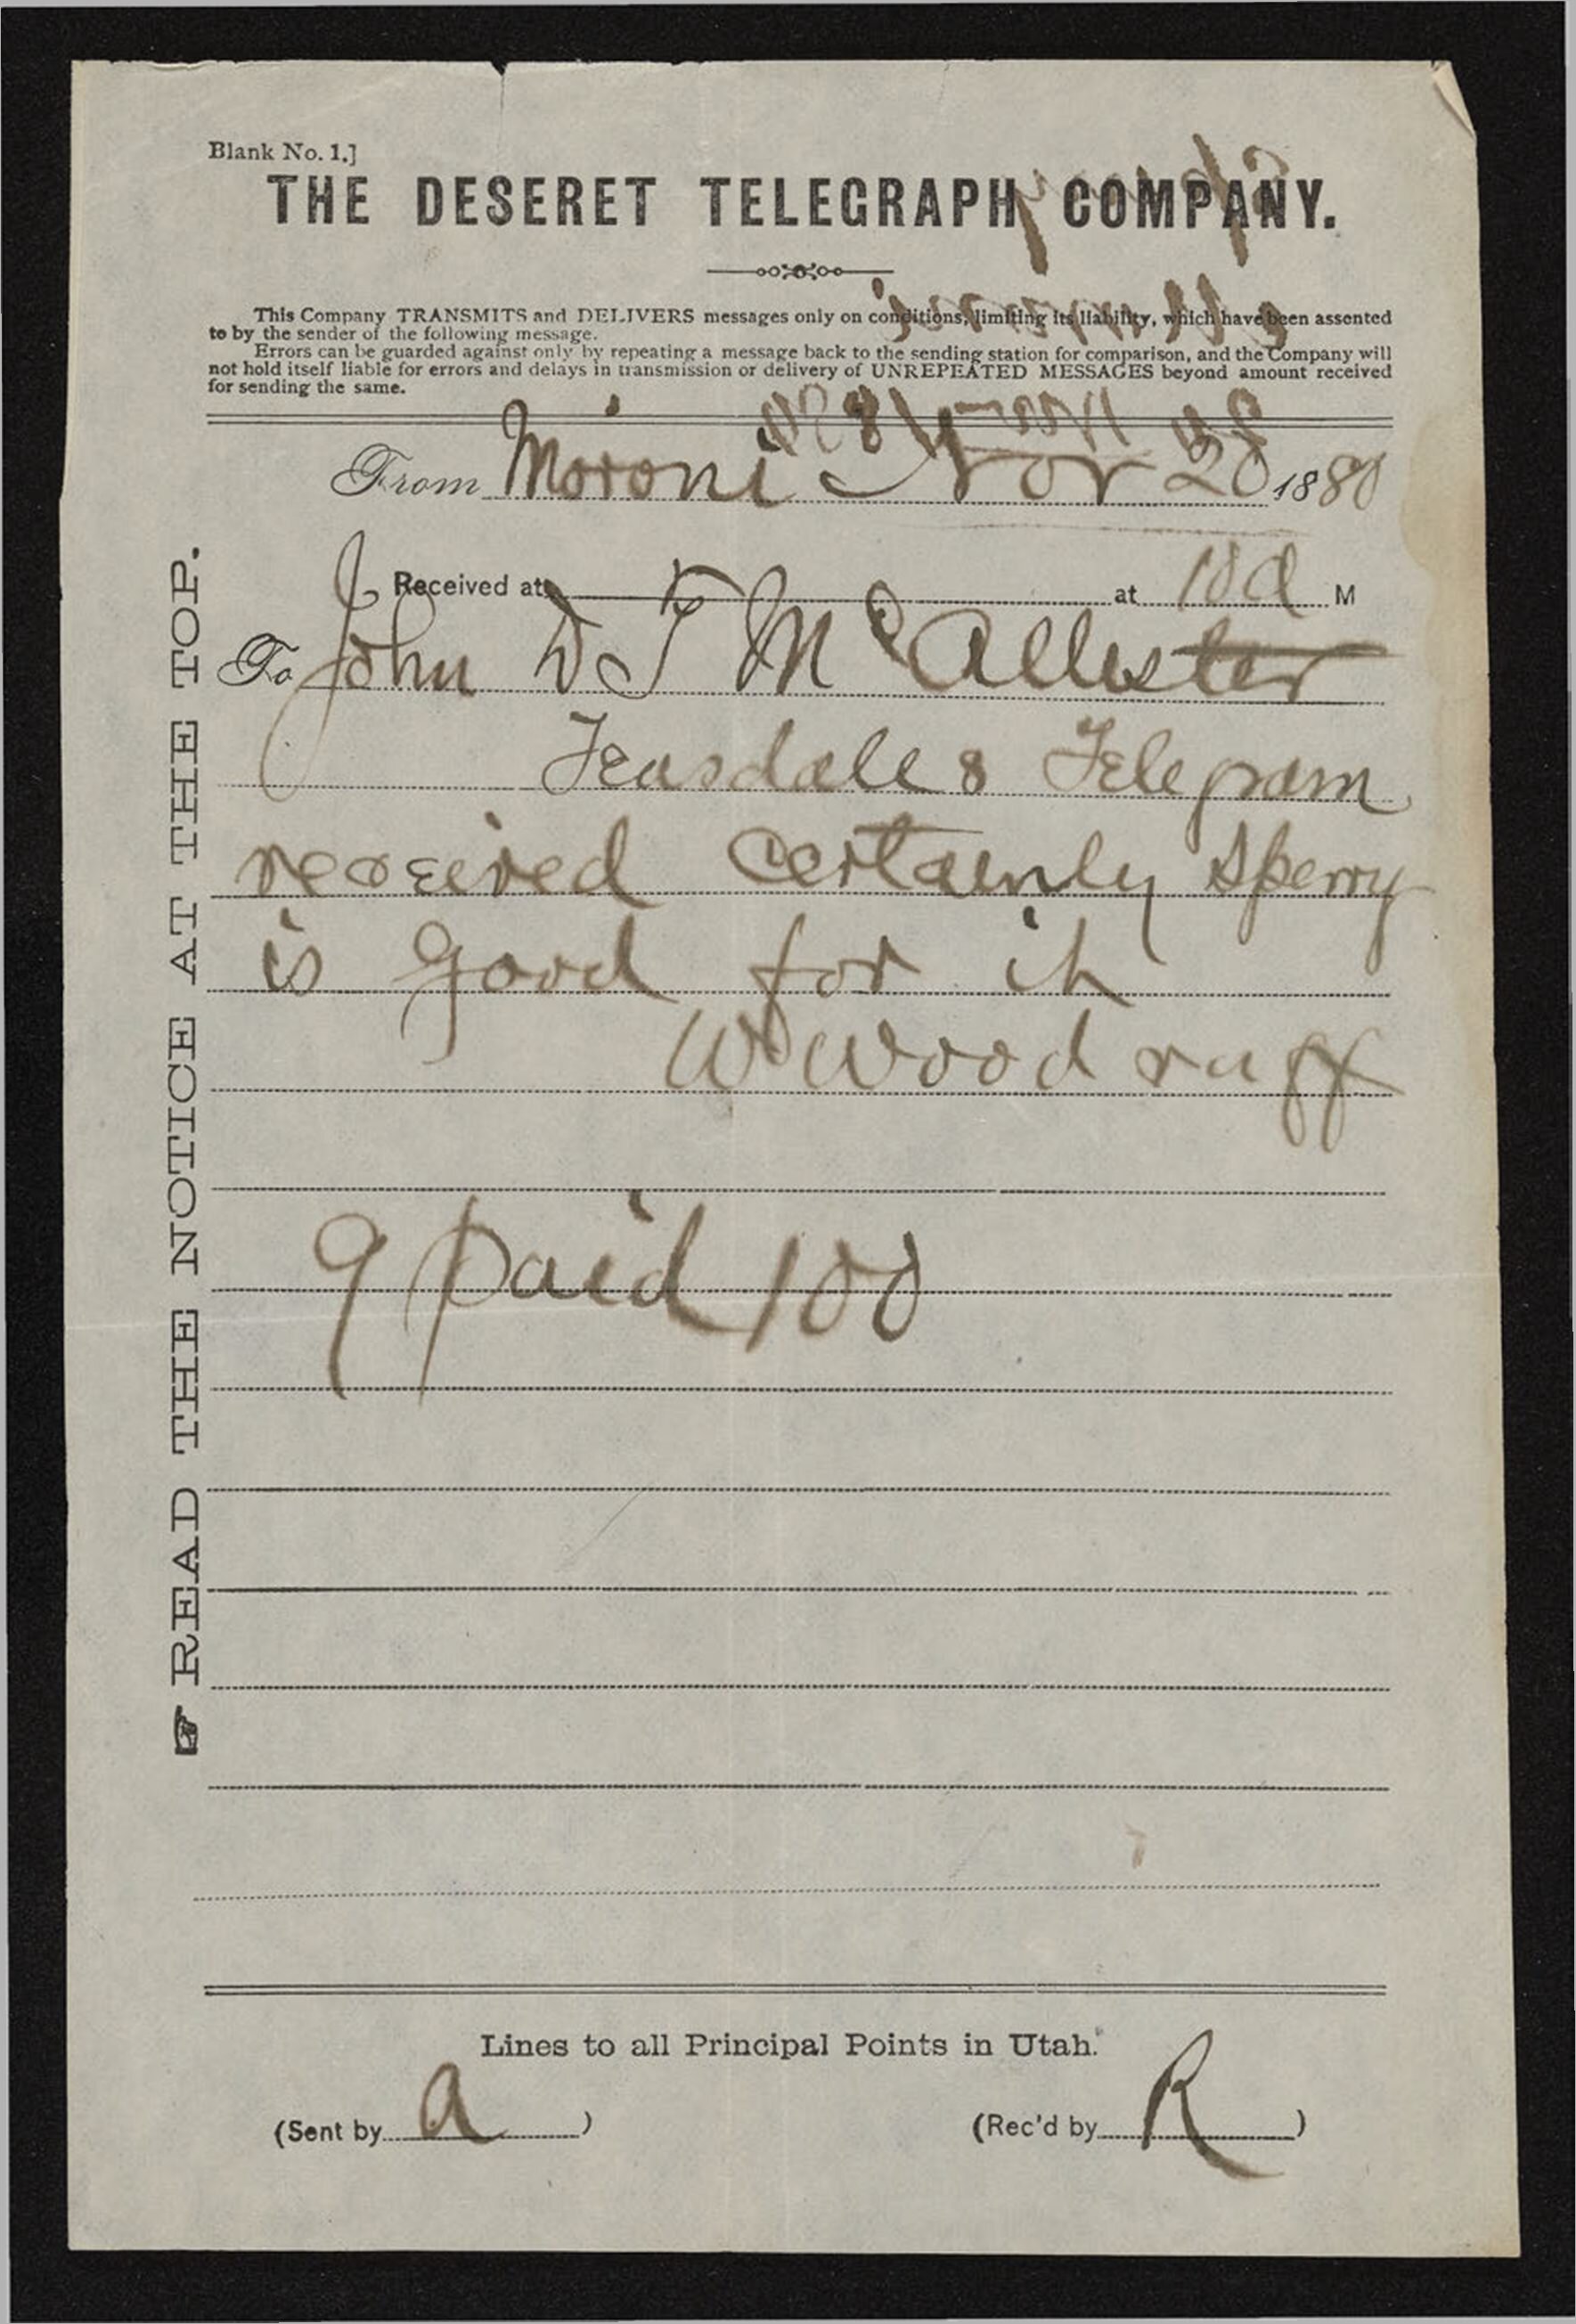 Blank No. 1.]
THE DESERET TELEGRAPH COMPANY.
This Company TRANSMITS and DELIVERS messages only on conditions, limiting its liability, which have been assented
to by the sender of the following message.
Errors can be guarded against only by repeating a message back to the sending station for comparison, and the Company will
not hold itself liable for errors and delays in transmission or delivery of UNREPEATED MESSAGES beyond amount received
for sending the same.
From Moroni Nov 20 1880
Received at at 10 a M
To John D T McAllister
Teasdales Telegram
received certainly Sperry
is good for it
W Woodruff
9 paid 100
Lines to all Principal Points in Utah.
(Sent by A ) (Rec'd by R )
READ THE NOTICE AT THE TOP.